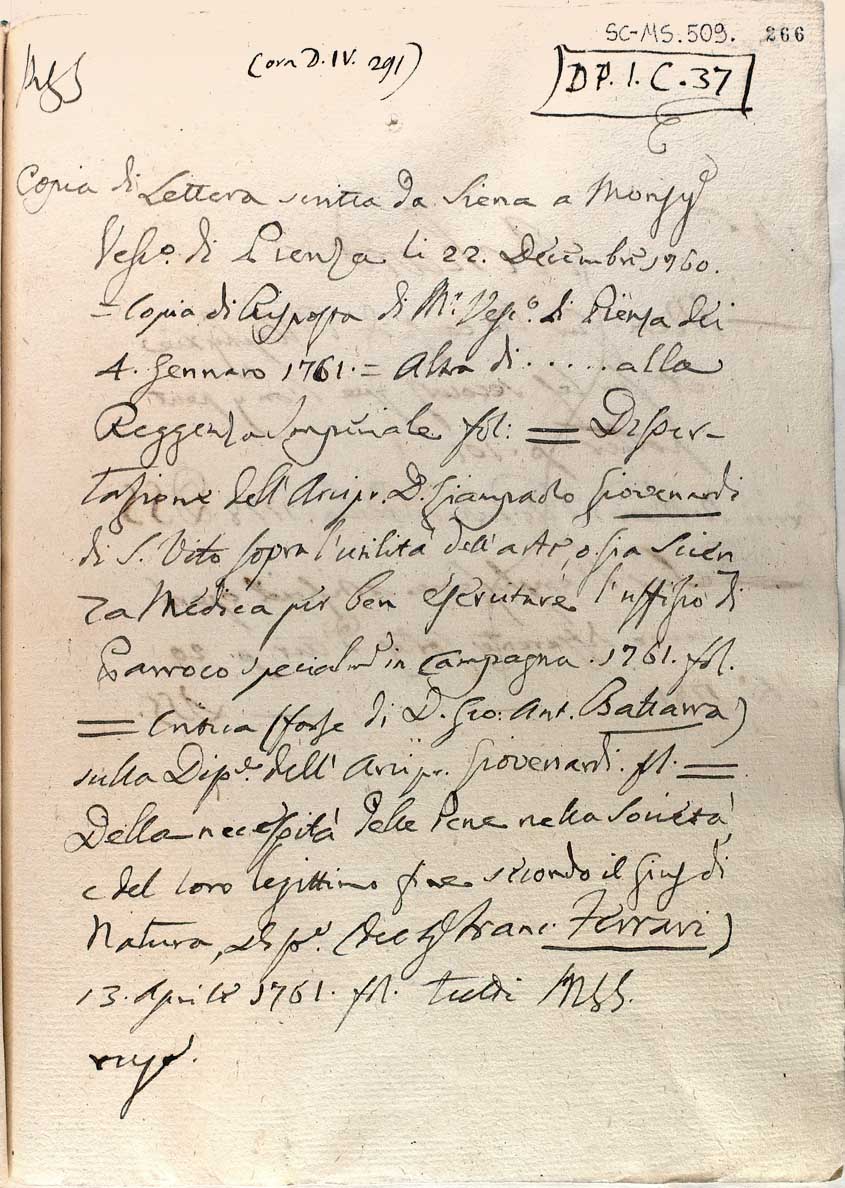 SC-MS. 509. 266
Mss
(ora D. IV. 291)
D P. I. C. 37
Copia di Lettera scritta da Siena a Monsig.r
Vesc.o di Pienza li 22. Decembre 1760.
= Copia di Risposta di M.r Vesc.o di Pienza dei
4. Gennaro 1761. = Altra di ..... alla
Reggenza Imperiale fol: = Disser-
tazione dell'Arcipr. D. Giampaolo Giovenardi
di S. Vito sopra l'utilità dell'arte, o sia Scien
za Medica per ben esercitare l'uffizio di
Parroco specialm.e in Campagna. 1761. fol.
= Critica (forse di D. Gio: Ant. Battarra)
sulla Diss.e dell'Arcipr. Giovenardi. fol. =
Della necessità delle Pene nella Società,
e del loro legittimo fine secondo il Gius di
Natura, Franc. Ferrari)
13. Aprile 1761. fol. tutti Mss.